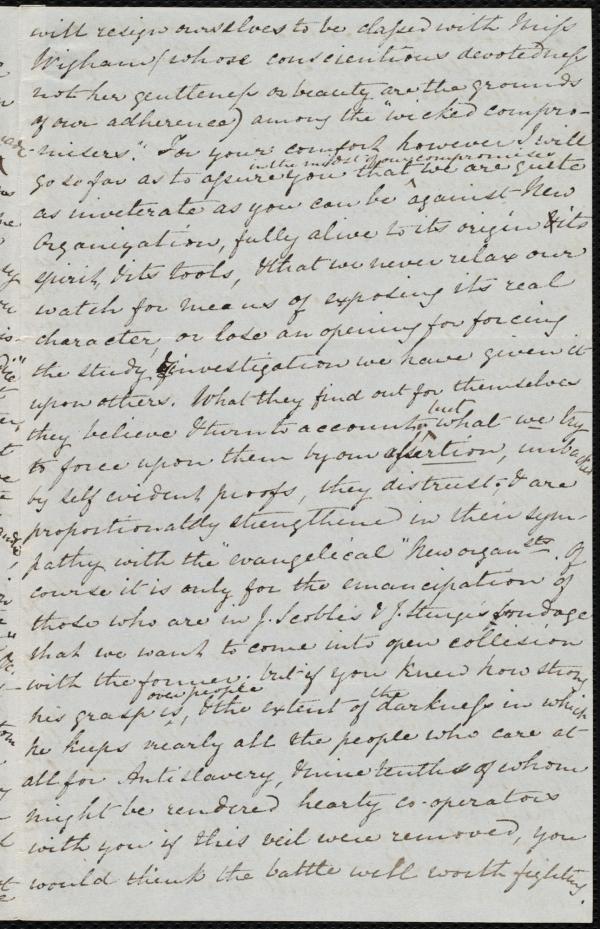 will resign ourselves to be classed with Miss
Wigham (whose conscientious devotedness
not her gentleness or beauty are the grounds
of our adherence) among the "wicked compro-
-misers." For your comfort however I will
go so far as to assure you that we are quite
in the midst of our compromises
as inveterate as you can be ^ against New
Organization, fully alive to its origin & its
spirit, & its tools, & that we never relax our
watch for means of exposing its real
character, or lose an opening for forcing
the study & investigation we have given it
upon others. What they find out for themselves
they believe & turn to account, but what we try
to force upon them by our assertion, unbacked
by self evident proofs, they distrust; & are
proportionally strengthened in their sym-
pathy with the "evangelical" New organsts. Of
course it is only for the emancipation of
those who are in J. Scoble's & J. Sturge's bondage
that we want to come into open collision
with the former. but if you knew how strong
his grasp over people is, & the extent of the darkness in which
he keeps nearly all the people who care at
all for Antislavery, & nine tenths of whom
might be rendered hearty co-operators
with you if this veil were removed, you
would think the battle well worth fighting.